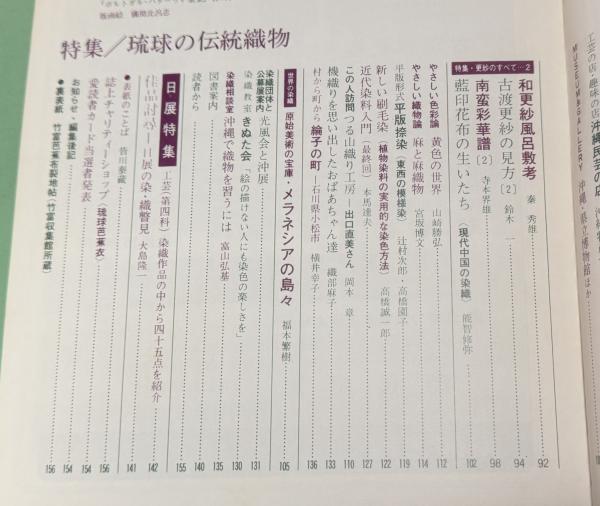 特集/琉球の伝統織物
工芸の店・趣味の店 沖縄民芸の店
MUSEUM GALLERY 沖縄・県立博物館ほか
特集・更紗のすべて…2
和更紗風呂敷考 秦 秀雄 92
古渡更紗の見方〔2〕 鈴木 一 94
南蛮彩華譜〔2〕 寺本界雄 98
藍印花布の生いたち〈現代中国の染織〉 能智修弥 102
やさしい色彩論 黄色の世界 山崎勝弘 112
やさしい織物論 麻と麻織物 宮坂博文 114
平版形式 平版捺染〈東西の模様染〉 辻村次郎・高橋園子 119
新しい刷毛染〈植物染料の実用的な染色方法〉 高橋誠一郎 122
近代染料入門〔最終回〕 本馬達夫 127
この人訪問 つる山織り工房―出口直美さん 岡本 章 110
機織りを思い出したおばあちゃん達 織部麻子 133
村から町から 綸子の町 石川県小松市 横井幸子 136
世界の染織
原始美術の宝庫・メラネシアの島々 福本繁樹 105
染織団体と公募展案内 光風会と沖展 131
染織教室 きぬた会「絵の描けない人にも染色の楽しさを」 130
染織相談室 沖縄で織物を習うには 富山弘基 135
図書案内 140
読者から 155
日展特集
工芸(第四科) 染織作品の中から四十五点を紹介 142
日展の染・織瞥見 大島隆一 141
●表紙のことば 皆川泰蔵 156
誌上チャリティーショップ(琉球芭蕉衣) 156
愛読者カード当選者発表 154
お知らせ・編集後記 154
●裏表紙 竹富芭蕉布裂地帖(竹富収集館所蔵) 156